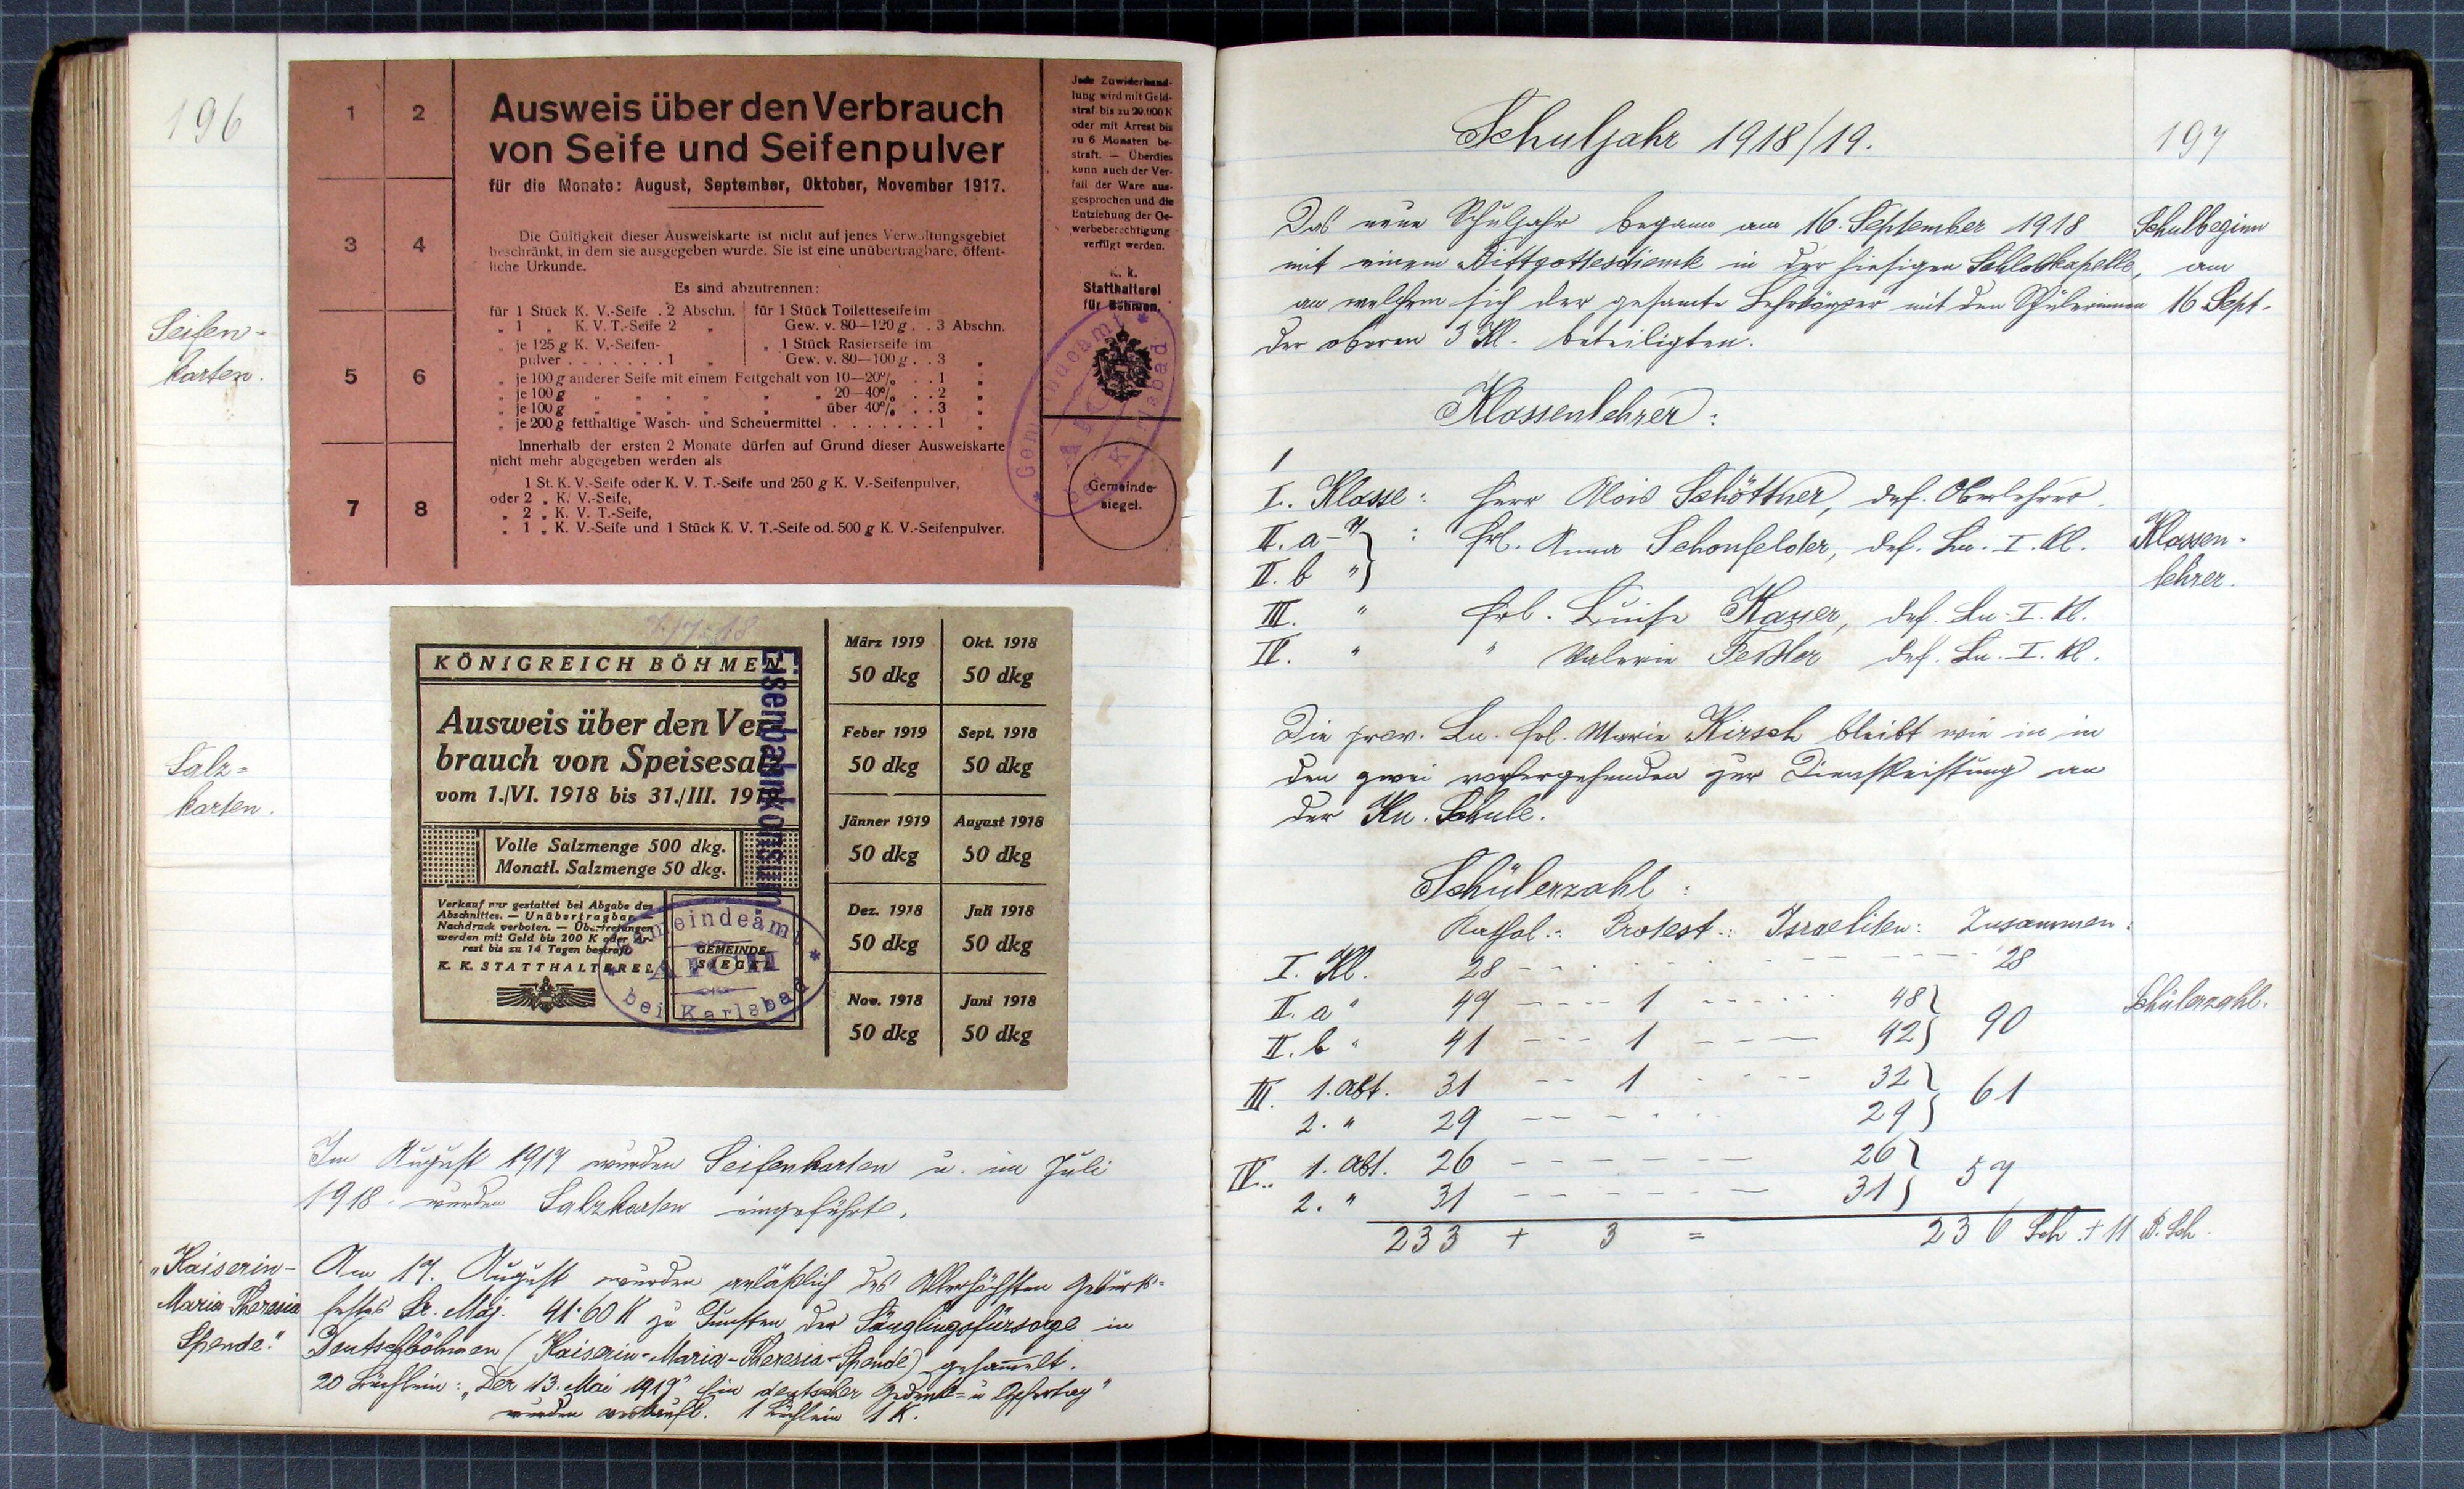 196
Seifen-
karten.
1 2
3 4
5 6
7 8
Ausweis über den Verbrauch
von Seife und Seifenpulver
für die Monate: August, September, Oktober, November 1917.
Die Gültigkeit dieser Ausweiskarte ist nicht auf jenes Verwaltungsgebiet
beschränkt, in dem sie ausgegeben wurde. Sie ist eine unübertragbare, öffent-
liche Urkunde.
Es sind abzutrennen:
für 1 Stück K. V.-Seife . 2 Abschn.
„ 1 „ K. V. T.-Seife 2 „
„ je 125 g K. V.-Seifen-
pulver . . . . . . . 1 „
für 1 Stück Toiletteseife im
Gew. v. 80—120 g . . 3 Abschn.
„ 1 Stück Rasierseife im
Gew. v. 80—100 g . . 3 „
„ je 100 g anderer Seife mit einem Fettgehalt von 10—20% . . 1 „
„ je 100 g „ „ „ „ „ „ 20—40% . . 2 „
„ je 100 g „ „ „ „ „ über 40% . . 3 „
„ je 200 g fetthaltige Wasch- und Scheuermittel . . . . . . . . 1 „
Innerhalb der ersten 2 Monate dürfen auf Grund dieser Ausweiskarte
nicht mehr abgegeben werden als
1 St. K. V.-Seife oder K. V. T.-Seife und 250 g K. V.-Seifenpulver,
oder 2 „ K. V.-Seife,
„ 2 „ K. V. T.-Seife,
„ 1 „ K. V.-Seife und 1 Stück K. V. T.-Seife od. 500 g K. V.-Seifenpulver.
Jede Zuwiderhand-
lung wird mit Geld-
straf. bis zu 20.000 K
oder mit Arrest bis
zu 6 Monaten be-
straft. — Überdies
kann auch der Ver-
fall der Ware aus-
gesprochen und die
Entziehung der Ge-
werbeberechtigung
verfügt werden.
K. k.
Statthalterei
für Böhmen.
Gemeindeamt
AICH
bei Karlsbad
Gemeinde-
siegel.
Salz=
karten.
KÖNIGREICH BÖHMEN
Ausweis über den Ver-
brauch von Speisesalz
vom 1./VI. 1918 bis 31./III. 1919
Volle Salzmenge 500 dkg.
Monatl. Salzmenge 50 dkg.
Verkauf nur gestattet bei Abgabe des
Abschnittes. — Unübertragbar —
Nachdruck verboten. — Übertretungen
werden mit Geld bis 200 K oder Ar-
rest bis zu 14 Tagen bestraft.
K. K. STATTHALTEREI.
GEMEINDE-
SIEGEL
Eisenbahnkonsum.
Gemeindeamt
AICH
bei Karlsbad
März 1919 Okt. 1918
50 dkg 50 dkg
Feber 1919 Sept. 1918
50 dkg 50 dkg
Jänner 1919 August 1918
50 dkg 50 dkg
Dez. 1918 Juli 1918
50 dkg 50 dkg
Nov. 1918 Juni 1918
50 dkg 50 dkg
Im August 1917 wurden Seifenkarten u. im Juli
1918 wurden Salzkarten eingeführt.
„Kaiserin-
Maria Theresia
Spende."
Am 17. August wurden anläßlich des Allerhöchsten Geburts=
festes Sr. Maj. 41·60 K zu Gunsten der Säuglingsfürsorge in
Deutschböhmen (Kaiserin-Maria-Theresia-Spende) gesammelt.
20 Büchlein: „Der 13. Mai 1917" Ein deutscher Gedenk= u Opfertag"
wurden verkauft. 1 Büchlein 1 K.
197
Schuljahr 1918/19.
Das neue Schuljahr begann am 16. September 1918
mit einem Bittgottesdienste in der hiesigen Schloßkapelle,
an welchem sich der gesamte Lehrkörper mit den Schülerinnen
der oberen 3 Kl. beteiligten.
Schulbeginn
am
16 Sept.
Klassenlehrer:
I. Klasse: Herr Alois Schöttner, def. Oberlehrer.
II. a „ : Frl. Anna Schönfelder, def. Ln. I. Kl.
II. b „
III. „ Frl. Luise Kayser, def. Ln. I. Kl.
IV. „ „ Valerie Feßler def. Ln. I. Kl.
Klassen-
lehrer.
Die prov. Ln. Frl. Marie Kirsch bleibt wie in in
den zwei vorhergehenden zur Dienstleistung an
der Kn. Schule.
Schülerzahl:
Kathol.: Protest.: Israeliten: Zusammen:
I. Kl. 28 28
II. a „ 47 1 48 } 90
II. b „ 41 1 42
III. 1. Abt. 31 1 32 } 61
2. „ 29 29
IV. 1. Abt. 26 26 } 57
2. „ 31 31
233 + 3 = 236 Sch. + 11 P. Sch.
Schülerzahl.